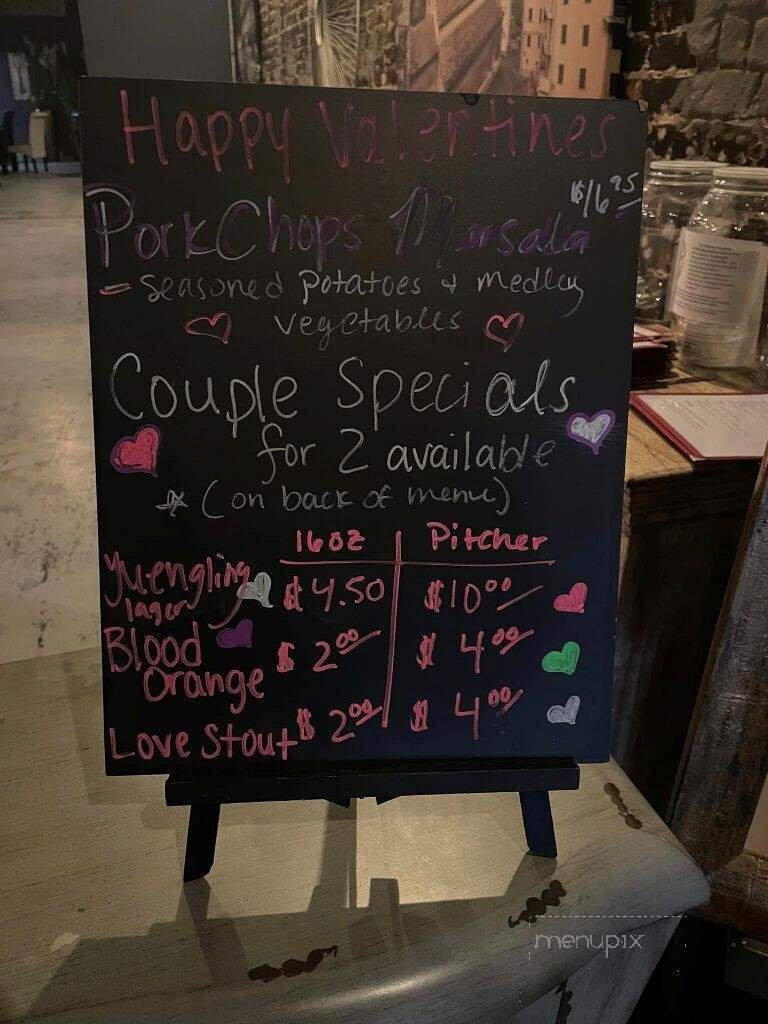 Happy Valentines
$16.95
Pork Chops Marsala
- Seasoned Potatoes & medley
vegetables
Couple Specials
for 2 available
* (on back of menu)
16oz Pitcher
Yuengling lager $4.50 $10.00
Blood Orange $2.00 $4.00
Love Stout $2.00 $4.00
menupix